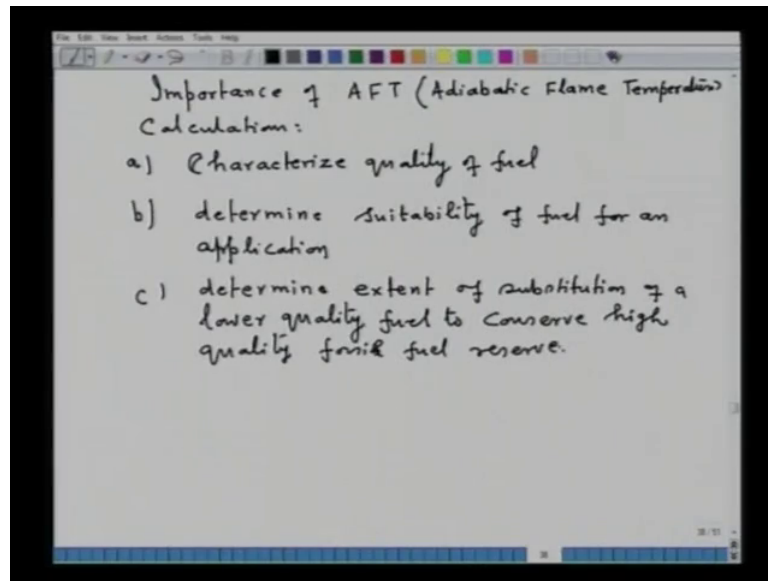 File Edit View Insert Actions Tools Help
Importance of AFT (Adiabatic Flame Temperature)
Calculation:
a) Characterize quality of fuel
b) determine suitability of fuel for an
application
c) determine extent of substitution of a
lower quality fuel to conserve high
quality fossil fuel reserve.